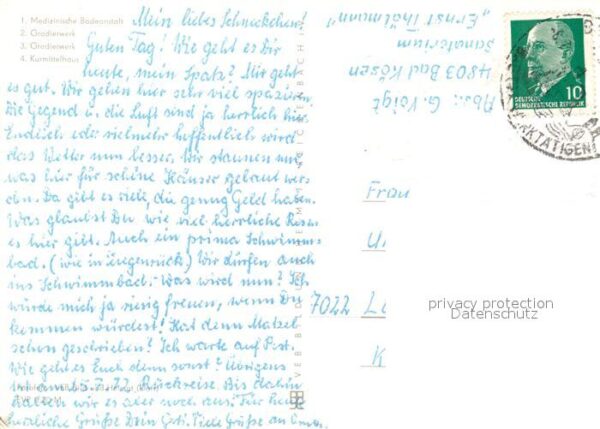 1. Medizinische Badeanstalt
2. Gradierwerk
3. Gradierwerk
4. Kurmittelhaus
Mein liebes Schneckchen!
Guten Tag! Wie geht es Dir
heute, mein Spatz? Mir geht
es gut. Wir gehen hier sehr viel spazieren.
Die Gegend u. die Luft sind ja herrlich hier.
Endlich oder vielmehr hoffentlich wird
das Wetter nun besser. Wir staunen nur,
was hier für schöne Häuser gebaut wer-
den. Da gibt es viele, die genug Geld haben.
Was glaubst Du wie viel herrliche Rosen
es hier gibt. Auch ein prima Schwimm-
bad. (wie in Ziegenrück) Wir dürfen auch
ins Schwimmbad. Was wird nun? Ich
würde mich ja riesig freuen, wenn Du
kommen würdest! Hat denn
schon geschrieben? Ich warte auf Post.
Wie geht es Euch denn sonst? Übrigens
7.72 Rückreise. Bis dahin
halten wir es aber noch aus. Für heute
herzliche Grüße Dein Viele Grüße an
VEB BILD
REICHENBACH
Abs.: G. Voigt
4803 Bad Kösen
Sanatorium
„Ernst Thälmann"
10
DEUTSCHE
DEMOKRATISCHE REPUBLIK
WERKTÄTIGEN
Frau
7022 L
K
privacy protection
Datenschutz